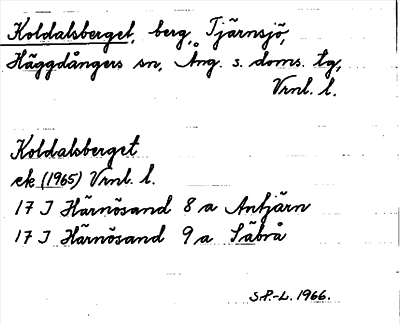 Koldalsberget, berg, Tjärnsjö,
Häggdångers sn, Ång. s. doms. tg,
Vrnl. l.
Koldalsberget
ek (1965) Vrnl. l.
17 J Härnösand 8 a Antjärn
17 J Härnösand 9 a Säbrå
S.P.-L. 1966.